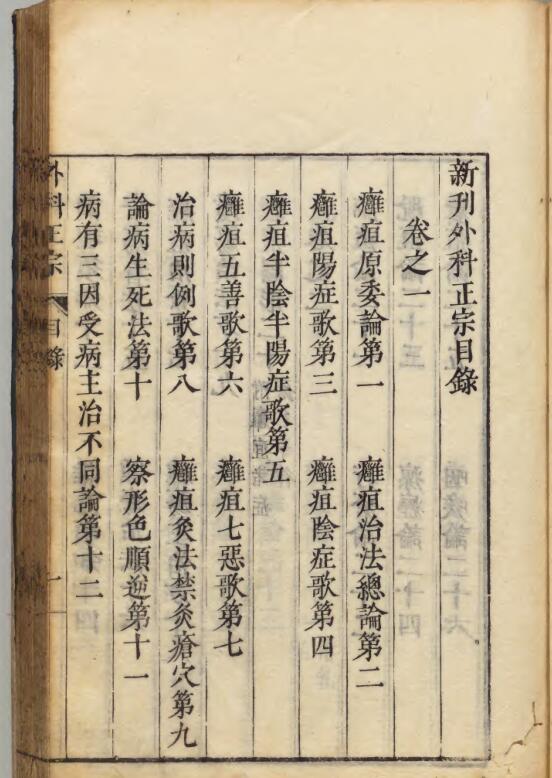 新刊外科正宗目錄
卷之一
癰疽原委論第一　癰疽治法總論第二
癰疽陽症歌第三　癰疽陰症歌第四
癰疽半陰半陽症歌第五
癰疽五善歌第六　癰疽七惡歌第七
治病則例歌第八　癰疽灸法禁灸瘡穴第九
論病生死法第十　察形色順逆第十一
病有三因受病主治不同論第十二
外科正宗　目錄　一